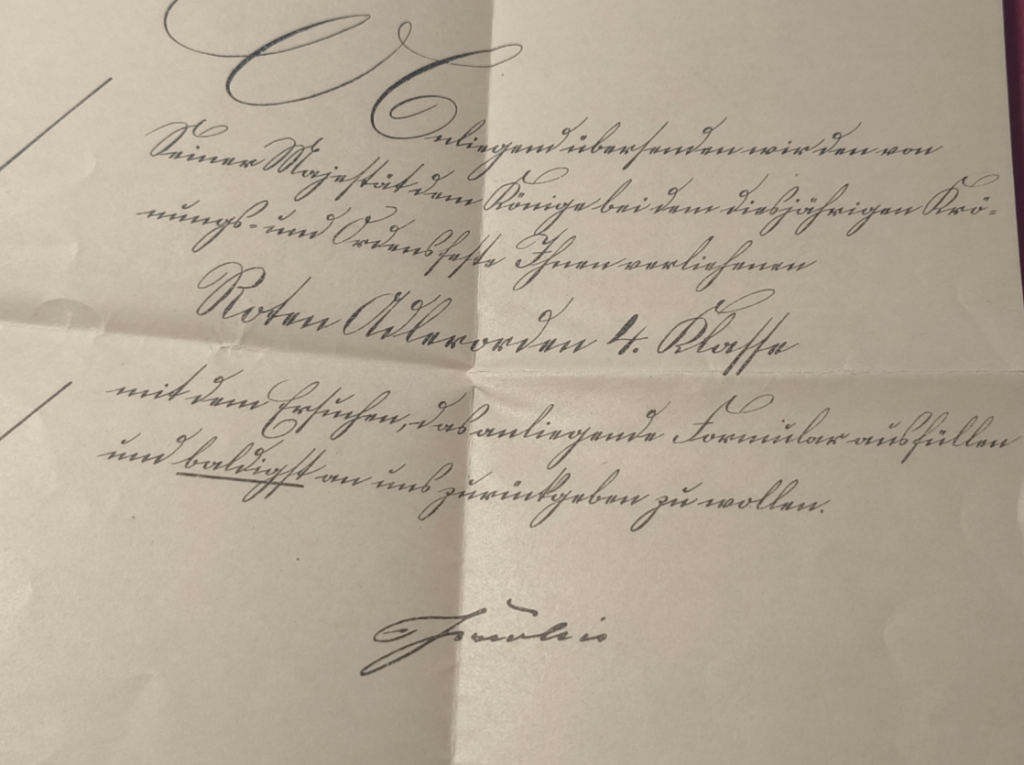 Anliegend übersenden wir den von
Seiner Majestät dem Könige bei dem diesjährigen Krö-
nungs- und Ordensfeste Ihnen verliehenen
Roten Adlerorden 4. Klasse
mit dem Ersuchen, das anliegende Formular ausfüllen
und baldigst an uns zurückgeben zu wollen.